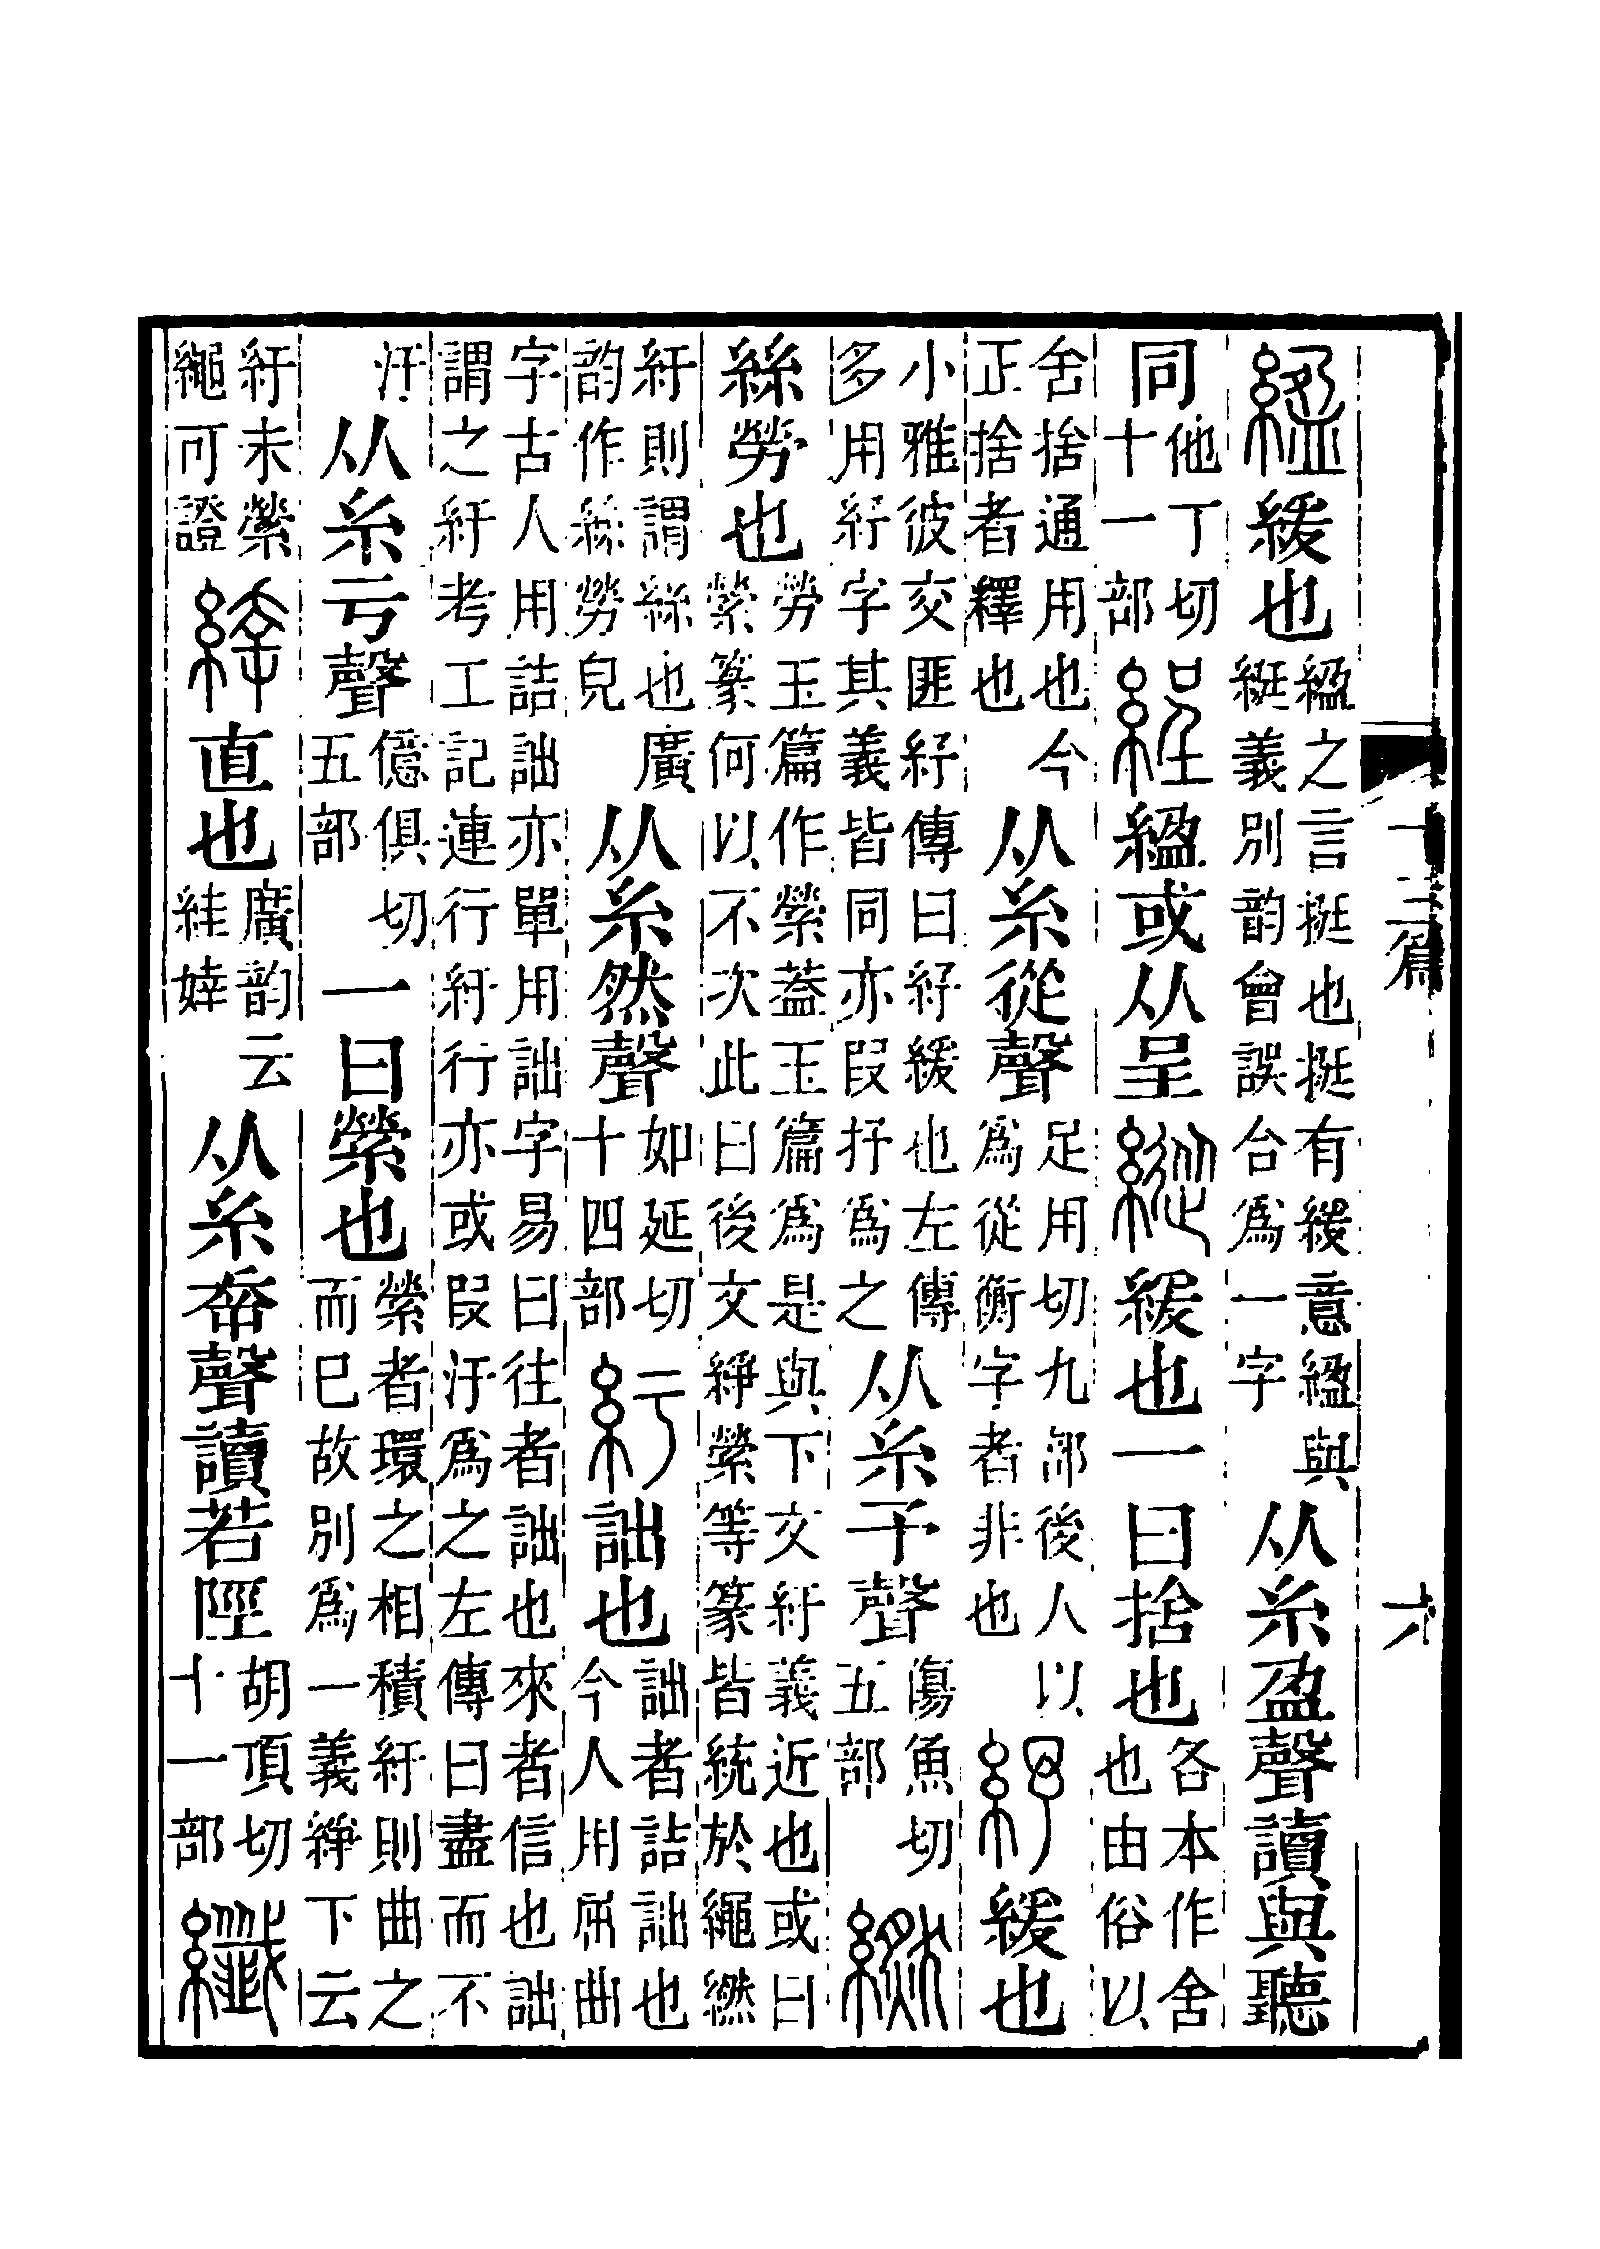 䋼緩也䋼之言挺也挺有緩意䋼與綎義別韵會誤合爲一字从糸盈聲讀與聽
同他丁切十一部䋫䋼或从呈縱緩也一曰捨也各本作舍也由俗以
舍捨通用也今正捨者釋也从糸從聲足用切九部後人以爲從衡字者非也紓緩也
小雅彼交匪紓傳曰紓緩也左傳多用紓字其義皆同亦叚抒爲之从糸予聲傷魚切五部繎
絲勞也勞玉篇作縈蓋玉篇爲是與下文紆義近也或曰縈篆何以不次此曰後文縈等篆皆統於繩繎
紆則謂絲也廣韵作絲勞皃从糸然聲如延切十四部紆詘也詘者詰詘也今人用屈曲
字古人用詰詘亦單用詘字易曰往者詘也來者信也詘謂之紆考工記連行紆行亦或叚汙爲之左傳曰盡而不
汙从糸亏聲億俱切五部一曰縈也縈者環之相積紆則曲之而已故別爲一義下云
紆未縈繩可證緈直也廣韵云絓緈从糸㚔聲讀若陘胡頂切十一部纖
十三篇
六